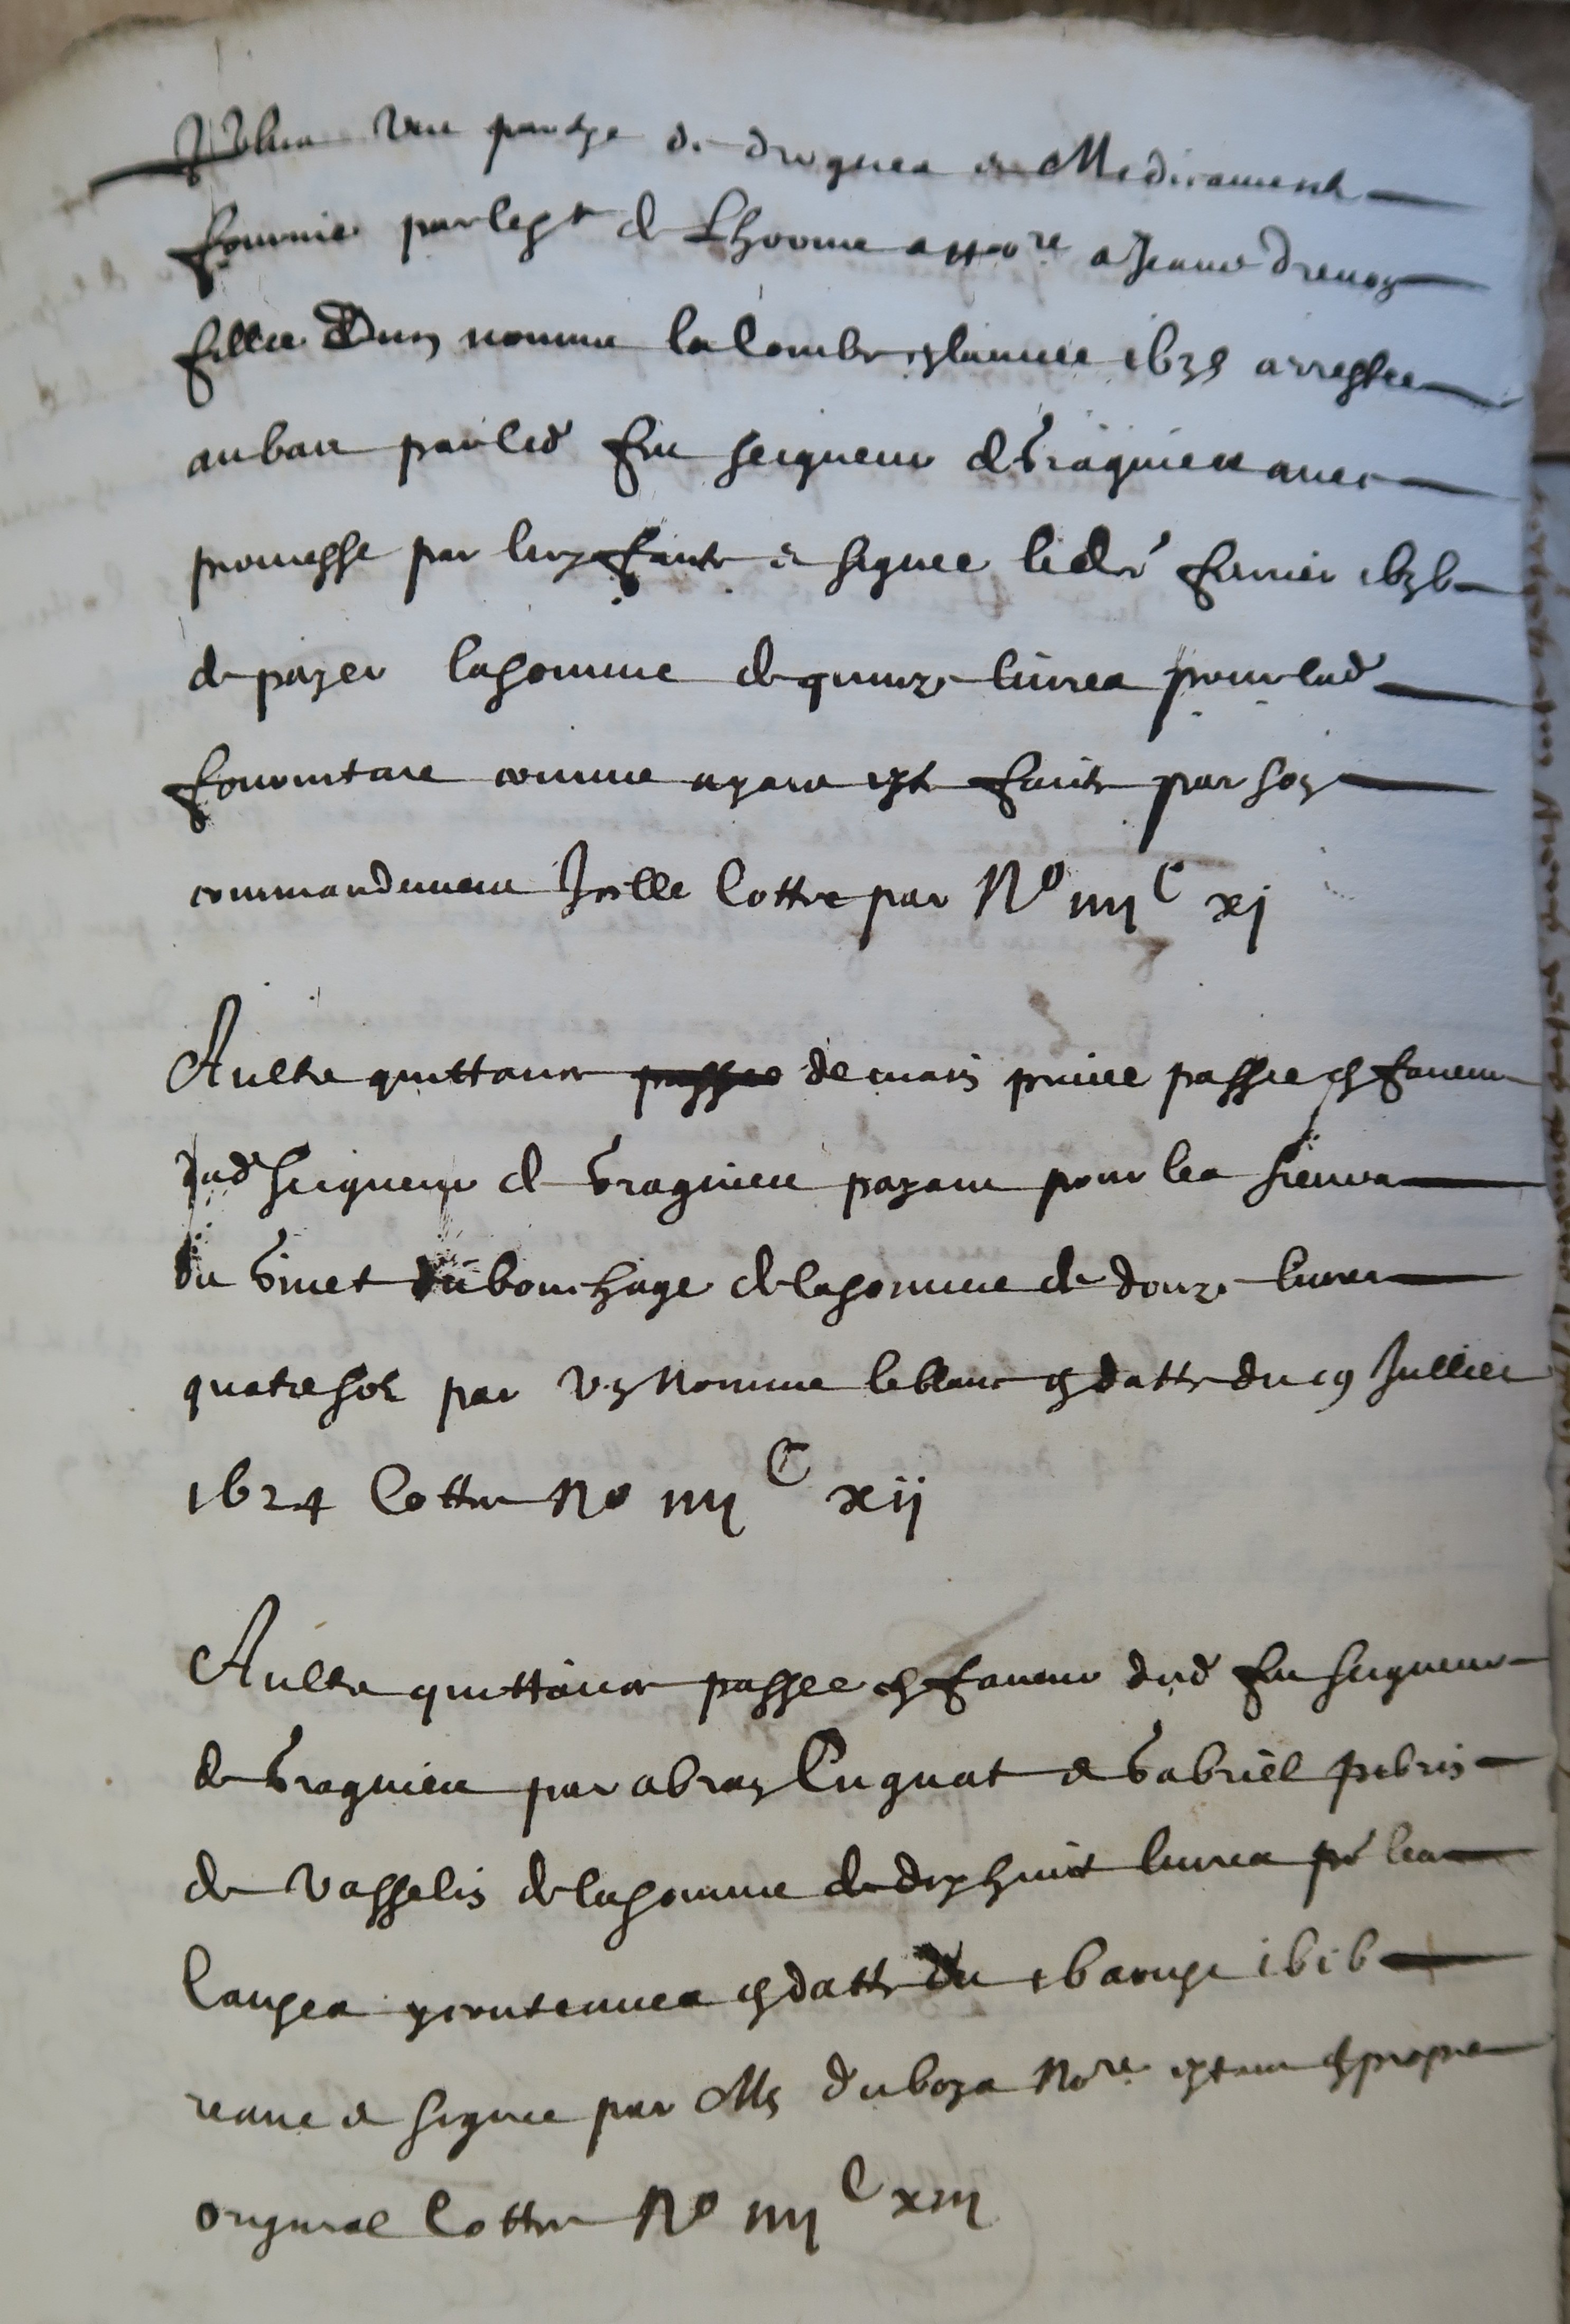 Plus une partye de drogues et Medicaments
fournie par le sr de Lhorme appore a Jeanne drevoz
fillie Dun nomme la Combe en lannee 1635 arrestee
aubas par led feu seigneur de Gragnieu avec
promesse par luy faite et signee le dr febvrier 1636
de payer la somme de quinze livres pour lad
fourniture comme ayant este faite par son
commandement Icelle Cotte par No iiii C xi
Aultre quittance de main privee passee en faveur
dud seigneur de Gragnieu payant pour les sieurs
du Givet du bouchage de la somme de douze livres
quatre solz par ung Nomme leblanc en datte du 19 Jullier
1624 Cotte No iiii C xii
Aultre quittance passee en faveur dud feu seigneur
de Gragnieu par abraz Cuguat et Gabriel
de Vasselin de la somme de dix huict livres pr les
Causes y contenues en datte du 16 aougst 1616
receue et signee par Me duboys Nore estant en propre
original Cotte No iiii C xiii